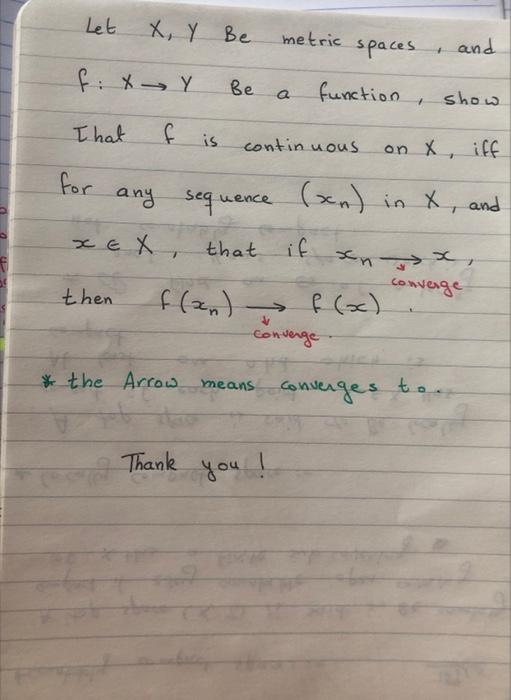 Let X, Y Be metric spaces, and
f: X → Y Be a function, show
That f is continuous on X, iff
for any sequence (xₙ) in X, and
x ∈ X, that if xₙ → x,
converge
then f(xₙ) → f(x).
converge.
* the Arrow means converges to.
Thank you!